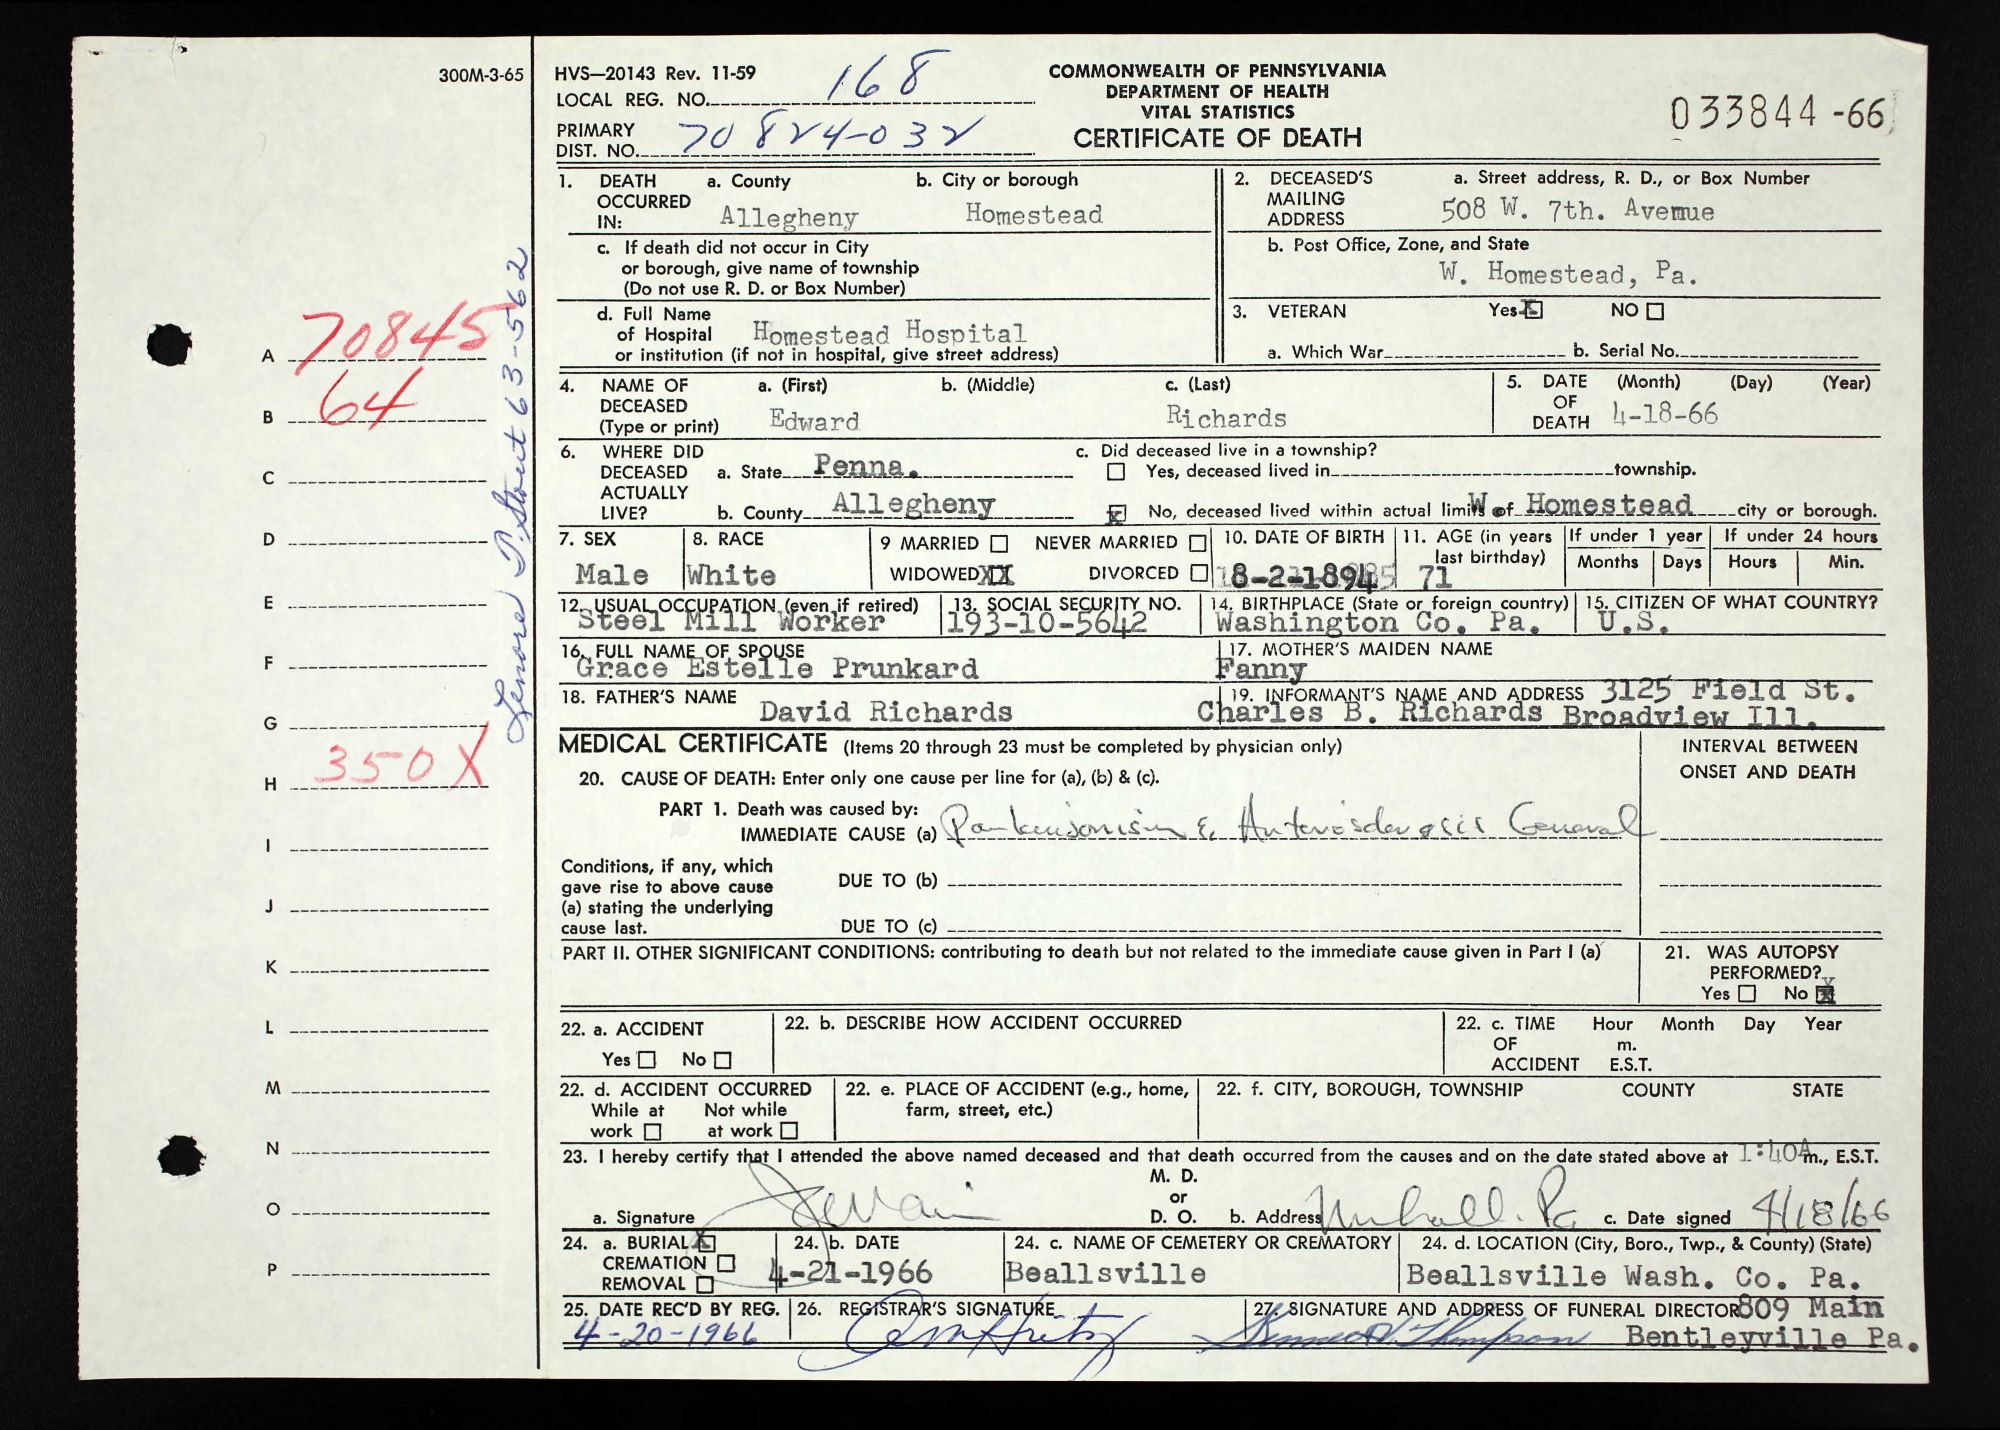 300M-3-65
HVS—20143 Rev. 11-59
LOCAL REG. NO. 168
PRIMARY
DIST. NO. 70824-032
COMMONWEALTH OF PENNSYLVANIA
DEPARTMENT OF HEALTH
VITAL STATISTICS
CERTIFICATE OF DEATH
033844 -66
1. DEATH OCCURRED IN: a. County Allegheny b. City or borough Homestead
c. If death did not occur in City
or borough, give name of township
(Do not use R. D. or Box Number)
d. Full Name
of Hospital Homestead Hospital
or institution (if not in hospital, give street address)
2. DECEASED'S MAILING ADDRESS a. Street address, R. D., or Box Number
508 W. 7th. Avenue
b. Post Office, Zone, and State
W. Homestead, Pa.
3. VETERAN Yes X NO
a. Which War b. Serial No.
4. NAME OF DECEASED (Type or print) a. (First) b. (Middle) c. (Last)
Edward Richards
5. DATE OF DEATH (Month) (Day) (Year)
4-18-66
6. WHERE DID DECEASED ACTUALLY LIVE? a. State Penna.
b. County Allegheny
c. Did deceased live in a township?
Yes, deceased lived in township.
X No, deceased lived within actual limits of W. Homestead city or borough.
7. SEX Male
8. RACE White
9 MARRIED NEVER MARRIED
WIDOWED XX DIVORCED
10. DATE OF BIRTH
8-2-1894
11. AGE (in years last birthday) 71
If under 1 year Months Days
If under 24 hours Hours Min.
12. USUAL OCCUPATION (even if retired)
Steel Mill Worker
13. SOCIAL SECURITY NO.
193-10-5642
14. BIRTHPLACE (State or foreign country)
Washington Co. Pa.
15. CITIZEN OF WHAT COUNTRY?
U.S.
16. FULL NAME OF SPOUSE
Grace Estelle Prunkard
17. MOTHER'S MAIDEN NAME
Fanny
18. FATHER'S NAME
David Richards
19. INFORMANT'S NAME AND ADDRESS 3125 Field St.
Charles B. Richards Broadview Ill.
MEDICAL CERTIFICATE (Items 20 through 23 must be completed by physician only)
INTERVAL BETWEEN
ONSET AND DEATH
20. CAUSE OF DEATH: Enter only one cause per line for (a), (b) & (c).
PART 1. Death was caused by:
IMMEDIATE CAUSE (a) Parkinsonism & Arteriosclerosis General
Conditions, if any, which
gave rise to above cause
(a) stating the underlying
cause last.
DUE TO (b)
DUE TO (c)
PART II. OTHER SIGNIFICANT CONDITIONS: contributing to death but not related to the immediate cause given in Part I (a)
21. WAS AUTOPSY
PERFORMED?
Yes No X
22. a. ACCIDENT
Yes No
22. b. DESCRIBE HOW ACCIDENT OCCURRED
22. c. TIME OF ACCIDENT Hour Month Day Year
m.
E.S.T.
22. d. ACCIDENT OCCURRED
While at work Not while at work
22. e. PLACE OF ACCIDENT (e.g., home,
farm, street, etc.)
22. f. CITY, BOROUGH, TOWNSHIP COUNTY STATE
23. I hereby certify that I attended the above named deceased and that death occurred from the causes and on the date stated above at 1:40A m., E.S.T.
a. Signature
M. D.
or
D. O.
b. Address Munhall. Pa c. Date signed 4/18/66
24. a. BURIAL X
CREMATION
REMOVAL
24. b. DATE
4-21-1966
24. c. NAME OF CEMETERY OR CREMATORY
Beallsville
24. d. LOCATION (City, Boro., Twp., & County) (State)
Beallsville Wash. Co. Pa.
25. DATE REC'D BY REG.
4-20-1966
26. REGISTRAR'S SIGNATURE
27. SIGNATURE AND ADDRESS OF FUNERAL DIRECTOR 809 Main
Thompson Bentleyville Pa.
A 70845
B 64
C
D
E
F
G
H 350X
I
J
K
L
M
N
O
P
Lenore P. Stout 63-562